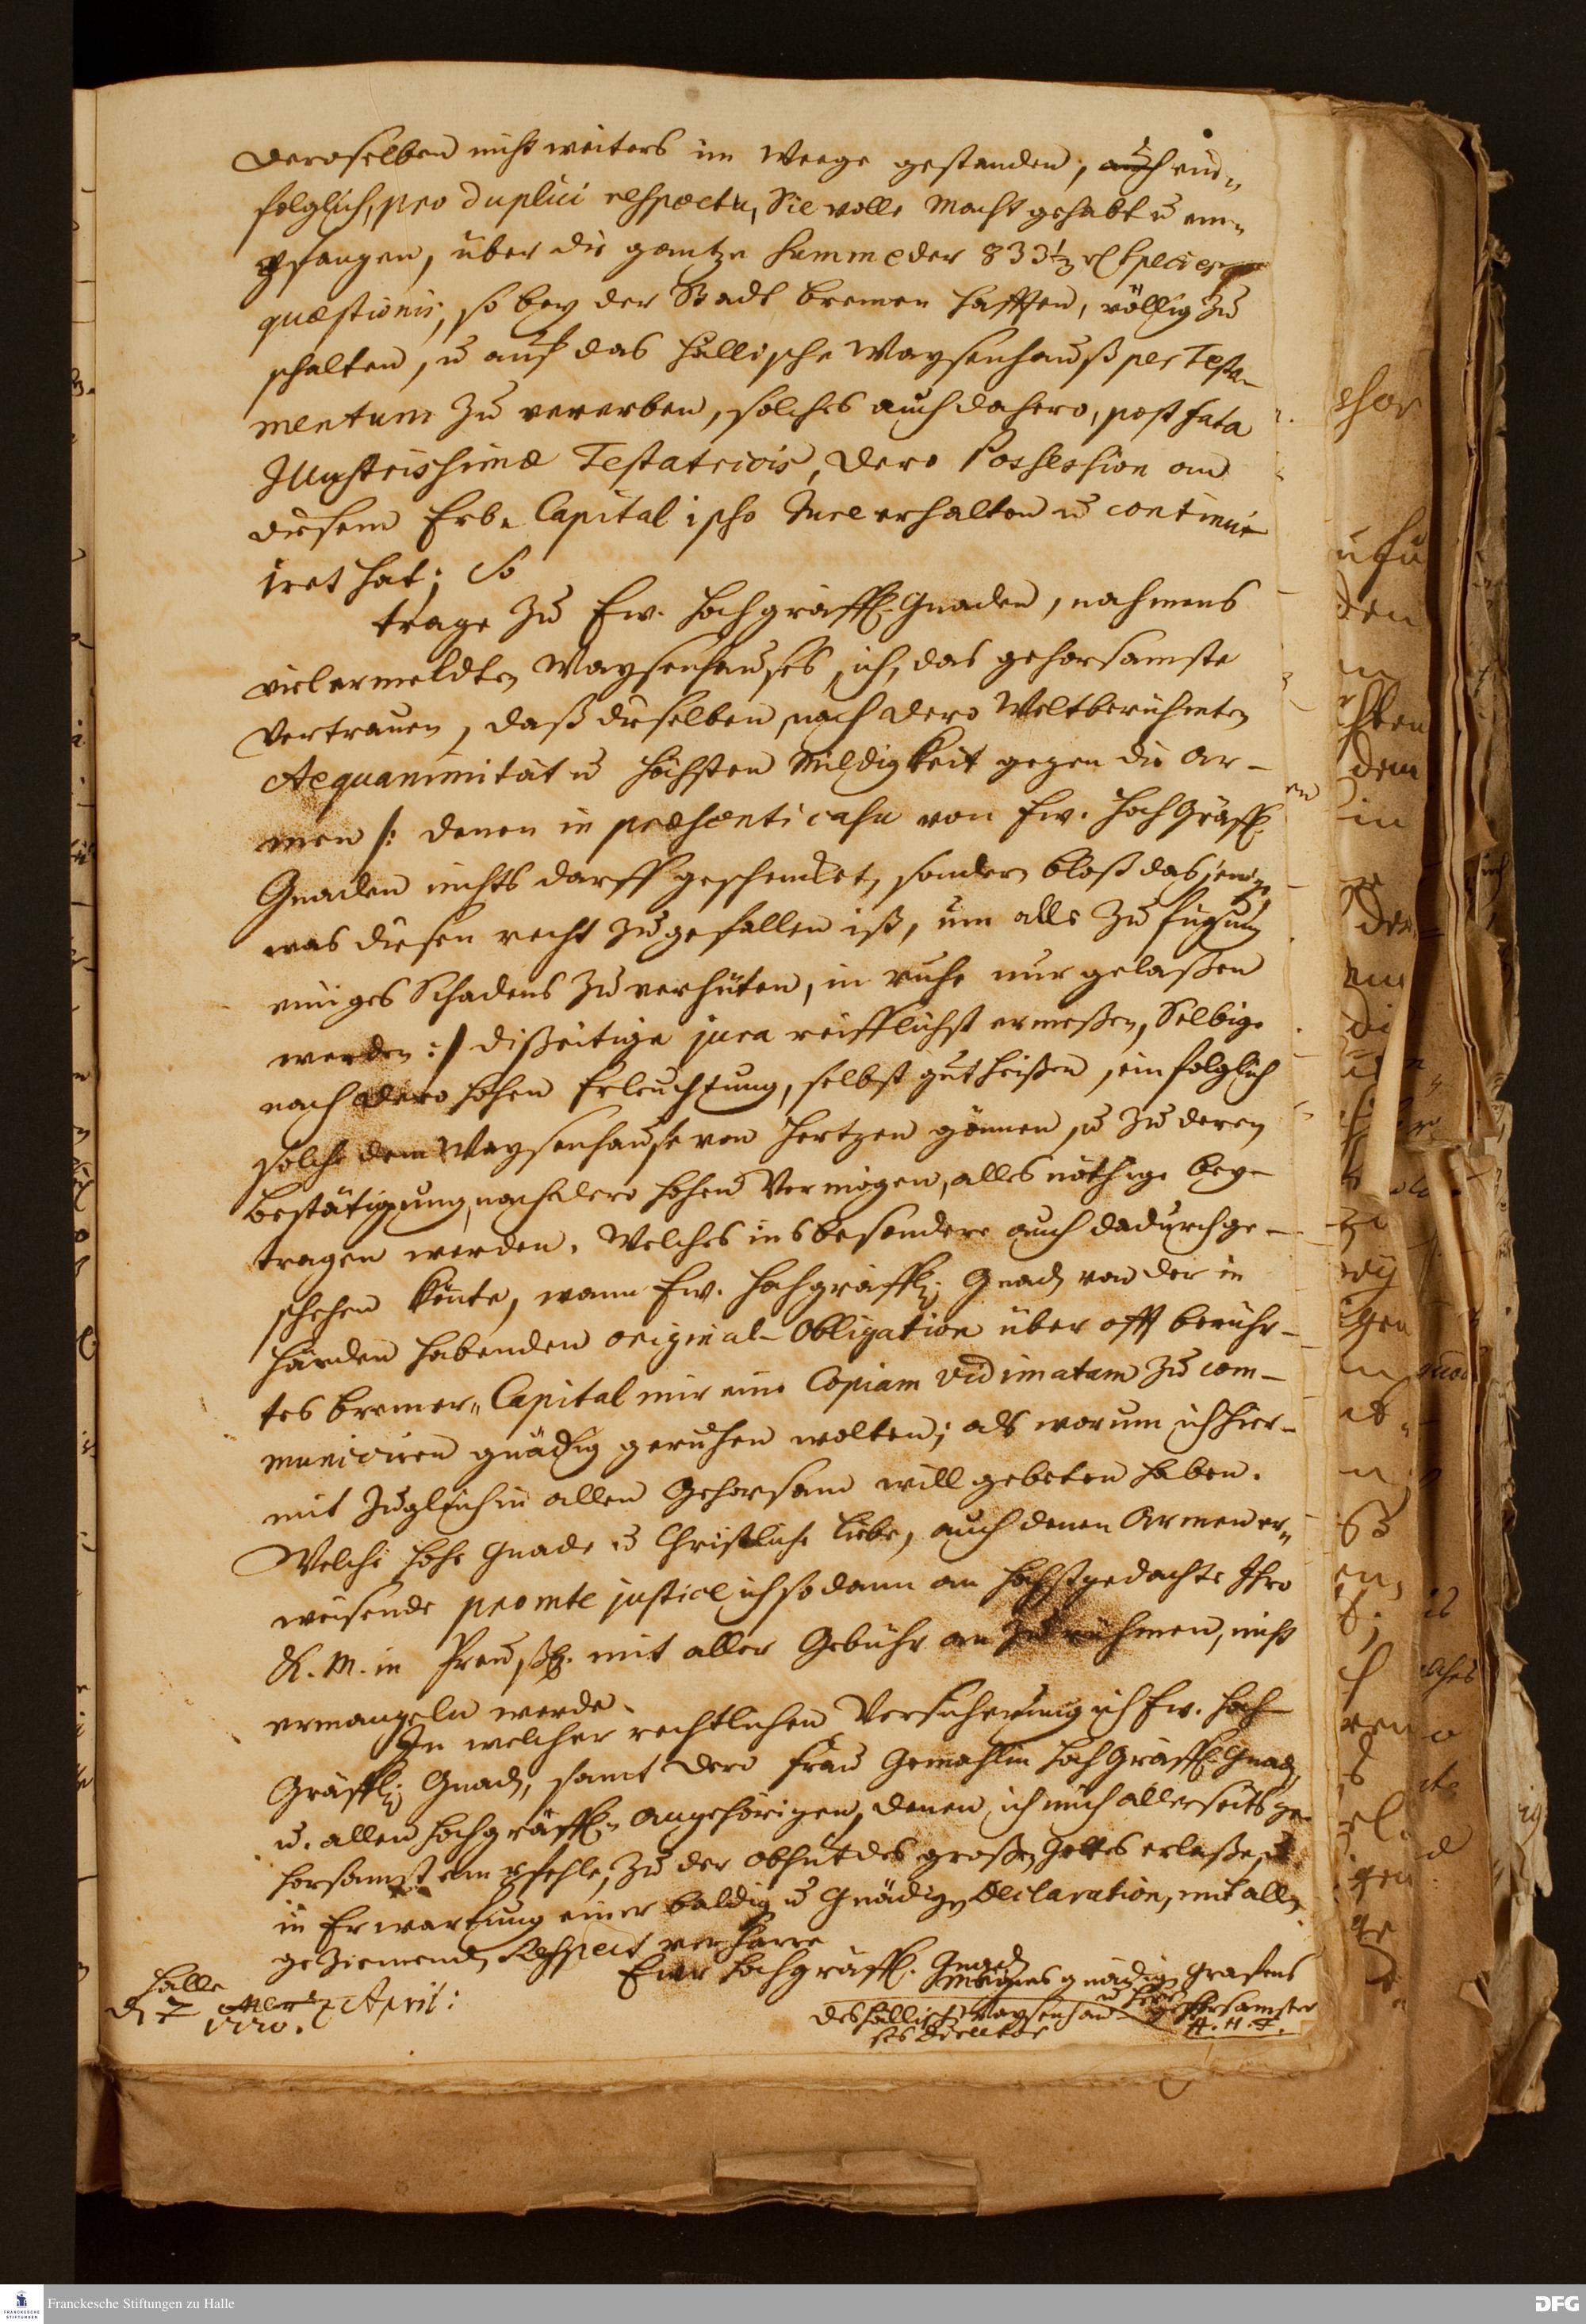 deroselben nicht weiters im Weege gestanden, auch ein„
folglich, pro duplici respectu, Sie volle Macht gehabt u. em„
pfangen, über die gantze Summe der 833⅓ rl Species
quæstionis, so bey der Stadt Bremen hafften, völlig zu
schalten, u. auf das Hällische Waysenhauß per Testa-
mentum zu vererben, solches auch dahero, post fata
Illustrissimæ Testatricis, dero Possession an
diesem Erb-Capital ipso Jure erhalten u. continui-
iret hat; So
trage zu Ew. Hochgräffl. Gnaden, nahmens
vielermeldten Waysenhauses, ich, das gehorsamste
Vertrauen, daß dieselben, nach dero Weltberühmten
Aequanimität u. höchsten Mildigkeit gegen die Ar-
men /: denen in præsenti casu von Ew. Hochgräffl.
Gnaden nichts darff geschencket, sondern bloß dasjenige,
was diesen recht zugefallen ist, um alle Zufügung
einiges Schadens zu verhüten, in ruhe nur gelaßen
werden :/ disseitige jura reifflichst ermeßen, Selbige
nach dero hohen Erleuchtung, selbst gut heißen, einfolglich
solche dem Waysenhause von Hertzen gönnen, u. zu deren
Bestätigung, nach dero hohen Vermögen, alles nöthige bey-
tragen werden. Welches insbesondere auch dadurch ge-
schehen könte, wann Ew. Hochgräffl. Gnad. von der in
Händen habenden original-Obligation über offt berühr-
tes Bremer„Capital mir eine Copiam vidimatam zu com-
municiren gnädig geruhen wolten; als worum ich hier-
mit zugleich in allen Gehorsam will gebeten haben.
Welche hohe Gnade u. Christliche Liebe, auch denen Armen er„
weisende promte justice ich sodann an höchstgedachte Ihro
K. M. in Preuß. mit aller Gebühr an zu rühmen, nicht
ermangeln werde.
In welcher rechtlichen Versicherung ich Ew. Hoch-
Gräffl. Gnad, samt dero Frau Gemahlin Hochgräffl. Gnad.
u. allen Hochgräffl. Angehörigen, denen ich mich allerseits ge-
horsamst empfehle, zu der Obhut des großen Gottes erlaße, u.
in Erwartung einer baldig. u. Gnädigen Declaration, mit all.
geziemend. Respect verharre
Eurer Hochgräffl. Gnad.
Meines gnädigen Grafens
u. Herrn
Halle
d. 7 April:
1720.
des Hällisch. Waysenhau-
ses Director
gehorsamster
A. H. F.
Franckesche Stiftungen zu Halle
FRANCKESCHE
STIFTUNGEN
DFG